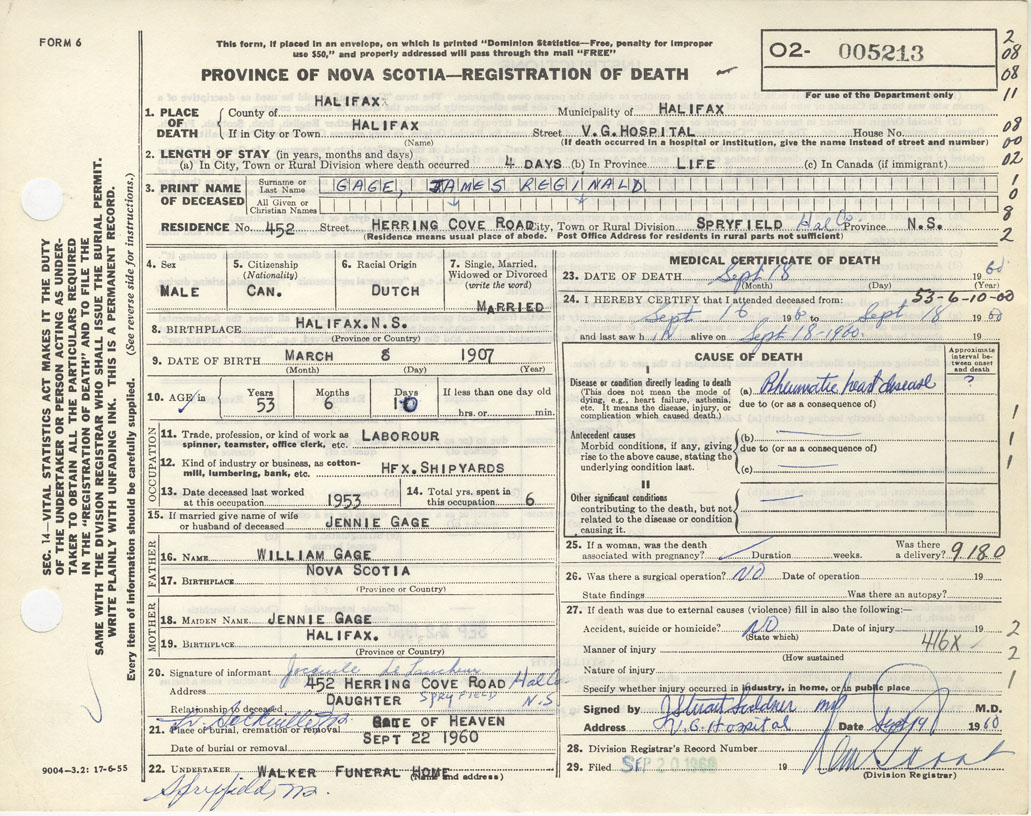 FORM 6
This form, if placed in an envelope, on which is printed "Dominion Statistics—Free, penalty for improper
use $50," and properly addressed will pass through the mail "FREE"
PROVINCE OF NOVA SCOTIA—REGISTRATION OF DEATH
O2- 005213
For use of the Department only
2
08
08
11
08
00
02
1
0
8
2
1. PLACE OF DEATH
County of HALIFAX Municipality of HALIFAX
If in City or Town HALIFAX Street V.G.HOSPITAL House No.
(Name) (If death occurred in a hospital or institution, give the name instead of street and number)
2. LENGTH OF STAY (in years, months and days)
(a) In City, Town or Rural Division where death occurred 4 DAYS (b) In Province LIFE (c) In Canada (if immigrant)
3. PRINT NAME OF DECEASED
Surname or Last Name GAGE, JAMES REGINALD
All Given or Christian Names
RESIDENCE No. 452 Street HERRING COVE ROAD City, Town or Rural Division SPRYFIELD Hal Co. Province N.S.
(Residence means usual place of abode. Post Office Address for residents in rural parts not sufficient)
4. Sex MALE
5. Citizenship (Nationality) CAN.
6. Racial Origin DUTCH
7. Single, Married, Widowed or Divorced (write the word) MARRIED
8. BIRTHPLACE HALIFAX.N.S.
(Province or Country)
9. DATE OF BIRTH MARCH 8 1907
(Month) (Day) (Year)
10. AGE in Years 53 Months 6 Days 10 If less than one day old hrs. or min.
OCCUPATION
11. Trade, profession, or kind of work as spinner, teamster, office clerk, etc. LABOROUR
12. Kind of industry or business, as cotton-mill, lumbering, bank, etc. HFX.SHIPYARDS
13. Date deceased last worked at this occupation 1953
14. Total yrs. spent in this occupation 6
15. If married give name of wife or husband of deceased JENNIE GAGE
FATHER
16. NAME WILLIAM GAGE
17. BIRTHPLACE NOVA SCOTIA
(Province or Country)
MOTHER
18. MAIDEN NAME JENNIE GAGE
19. BIRTHPLACE HALIFAX.
(Province or Country)
20. Signature of informant
Address 452 HERRING COVE ROAD Hal Co
Relationship to deceased DAUGHTER SPRYFIELD N.S.
21. Place of burial, cremation or removal GATE OF HEAVEN
Date of burial or removal SEPT 22 1960
22. UNDERTAKER WALKER FUNERAL HOME
(Name and address)
Spryfield, N.S.
MEDICAL CERTIFICATE OF DEATH
23. DATE OF DEATH Sept 18 1960
(Month) (Day) (Year)
53-6-10-00
24. I HEREBY CERTIFY that I attended deceased from:
Sept 16 1960 to Sept 18 1960
and last saw h im alive on Sept 18-1960.
CAUSE OF DEATH
Approximate interval between onset and death
I
Disease or condition directly leading to death
(This does not mean the mode of dying, e.g., heart failure, asthenia, etc. It means the disease, injury, or complication which caused death.)
(a) Rheumatic heart disease ?
due to (or as a consequence of)
Antecedent causes
Morbid conditions, if any, giving rise to the above cause, stating the underlying condition last.
(b)
due to (or as a consequence of)
(c)
II
Other significant conditions
contributing to the death, but not related to the disease or condition causing it.
1
1
1
25. If a woman, was the death associated with pregnancy? Duration weeks. Was there a delivery? 9180
26. Was there a surgical operation? NO Date of operation 19
State findings Was there an autopsy?
27. If death was due to external causes (violence) fill in also the following:
Accident, suicide or homicide? NO Date of injury 19
(State which)
Manner of injury 416X
(How sustained)
Nature of injury
Specify whether injury occurred in industry, in home, or in public place
2
2
1
Signed by M.D.
Address V.G. Hospital Date Sept 19 1960
28. Division Registrar's Record Number
29. Filed SEP 20 1960 19
(Division Registrar)
SEC. 14—VITAL STATISTICS ACT MAKES IT THE DUTY
OF THE UNDERTAKER OR PERSON ACTING AS UNDER-
TAKER TO OBTAIN ALL THE PARTICULARS REQUIRED
IN THE "REGISTRATION OF DEATH" AND TO FILE THE
SAME WITH THE DIVISION REGISTRAR WHO SHALL ISSUE THE BURIAL PERMIT.
WRITE PLAINLY WITH UNFADING INK. THIS IS A PERMANENT RECORD.
Every item of information should be carefully supplied. (See reverse side for instructions.)
9004—3.2: 17-6-55